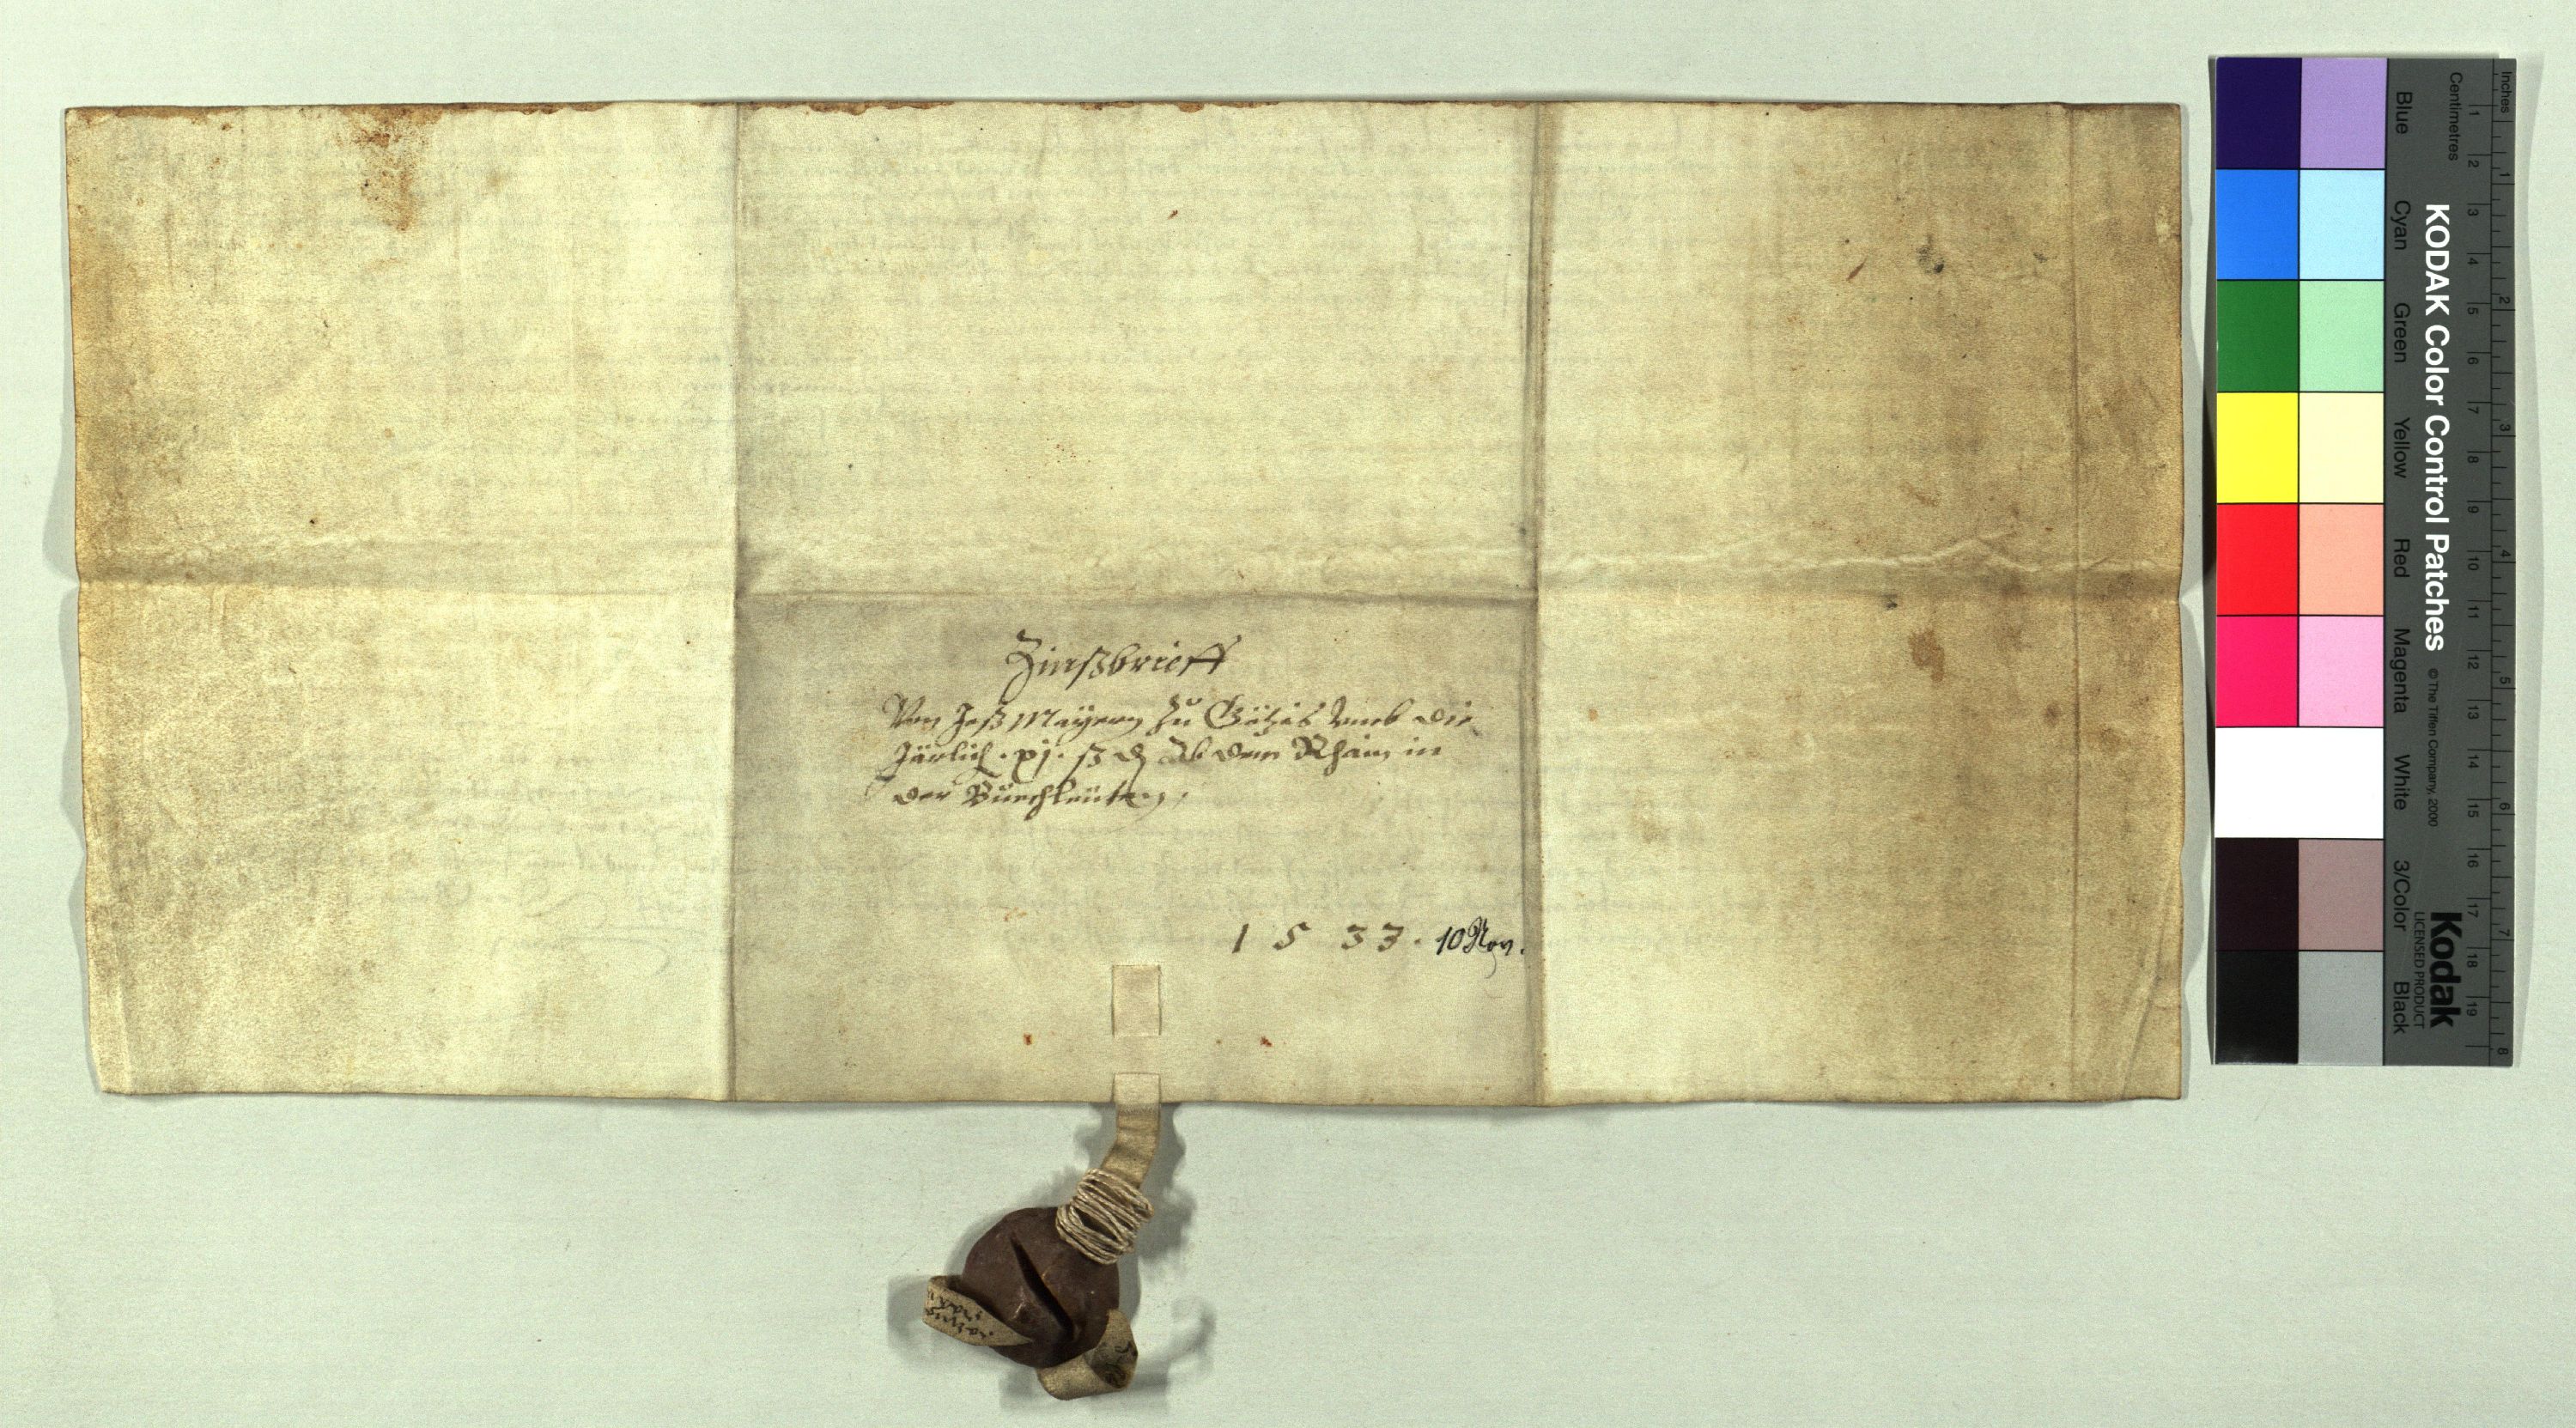 Zinßbrieff
Von Jos Mayern zu Götzis vmb die
Järlich . xj . ß ₰ Ab dem Rhain in
der Büechleüten,
1 5 3 3 . 10 Nov.
Inches
Centimetres
1 2 3 4 5 6 7 8 9 10 11 12 13 14 15 16 17 18 19
1 2 3 4 5 6 7 8
KODAK Color Control Patches © The Tiffen Company, 2000
Kodak
LICENSED PRODUCT
Blue Cyan Green Yellow Red Magenta White 3/Color Black